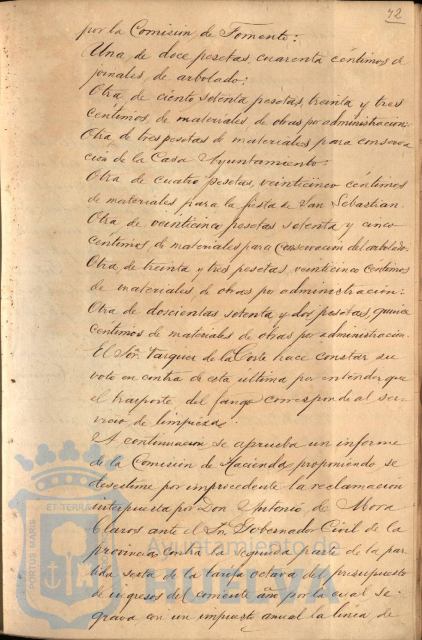 42
por la Comisión de Fomento:
Una de doce pesetas, cuarenta céntimos de
jornales, de arbolado:
Otra de ciento setenta pesetas, treinta y tres
céntimos, de materiales de obras por administración:
Otra de tres pesetas de materiales para conserva
ción de la Casa Ayuntamiento:
Otra de cuatro pesetas, veinticinco céntimos
de materiales para la fiesta de San Sebastian.
Otra de veinticinco pesetas setenta y cinco
centimos de materiales para conservación del arbolado.
Otra de treinta y tres pesetas, veinticinco centimos
de materiales de obras por administración:
Otra de doscientas setenta y dos pesetas, quince
centimos de materiales de obras por administración.
El Sor. Vazquez de la Corte hace constar su
voto en contra de esta última por entender que
el trasporte del fango corresponde al ser-
vicio de limpieza.
A continuación se aprueba un informe
de la Comisión de Hacienda, proponiendo se
desestime por improcedente la reclamación
interpuesta por Don Antonio de Mora
Claros ante el Sr. Gobernador Civil de la
provincia contra la segunda parte de la par
tida sesta de la tarifa octava del presupuesto
de ingresos del corriente año por la cual se
grava con un impuesto anual la línea de
PORTUS MARIS
ET TERRAE
Ayuntamiento de
HUELVA